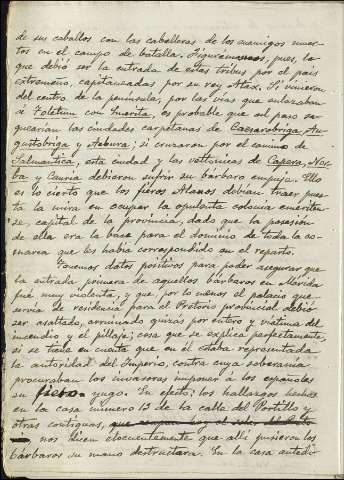 de sus caballos con las cabelleras de los enemigos muer-
tos en el campo de batalla. Figurémonos, pues, lo
que debió ser la entrada de estas tribus por el país
extremeño, capitaneadas por su rey Atax. Si vinieron
del centro de la península, por las vías que enlazaban
á Toletum con Emerita, es probable que su paso se-
guirían las ciudades carpetanas de Caesarobriga, Au-
gustobriga y Aebura; si cruzaron por el camino de
Salmantica, esta ciudad y las vettonicas de Capera, Nor-
ba y Cauria debieron sufrir su bárbaro empuje. Ello
es lo cierto que los fieros Alanos debían traer pues-
ta la mira en ocupar la opulenta colonia emeriten-
se, capital de la provincia, dado que la posesión
de ella era la base para el dominio de toda la co-
marca que les había correspondido en el reparto.
Tenemos datos positivos para poder asegurar que
la entrada primera de aquellos bárbaros en Mérida
fué muy violenta, y que, por lo menos el palacio que
servía de residencia para el Pretorio provincial debió
ser asaltado, arruinado quizás por entero y víctima del
incendio y el pillaje; cosa que se explica perfectamente,
si se tiene en cuenta que en él estaba representada
la autoridad del Imperio, contra cuya soberanía
procuraban los invasores imponer á los españoles
su fiero yugo. En efecto: los hallazgos hechos
en la casa número 13 de la calle del Portillo y
otras contiguas, que ocupan hoy el
nos dicen elocuentemente que allí pusieron los
bárbaros su mano destructora. En la casa antedi-